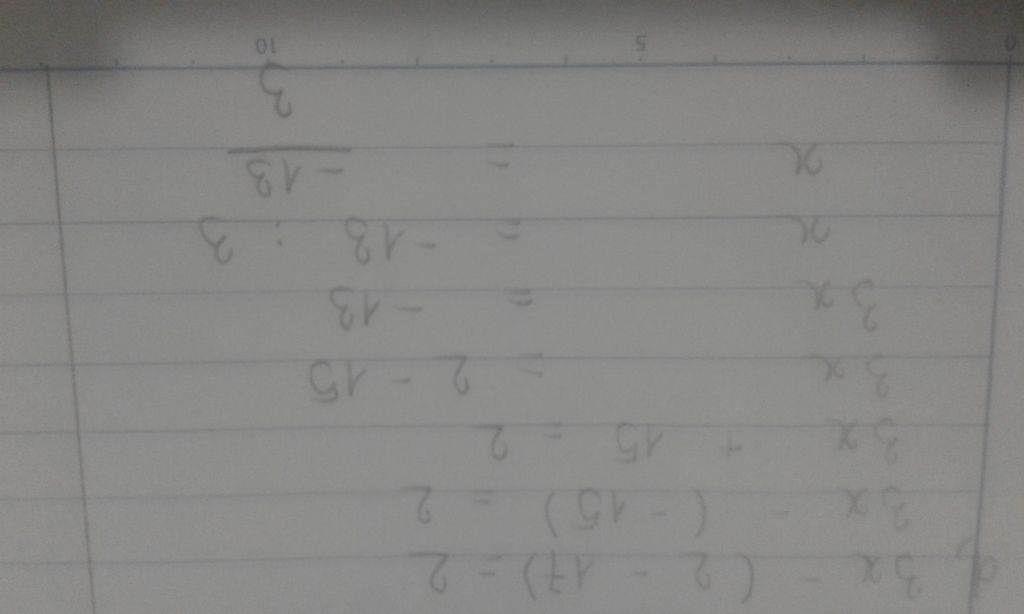 a, 3x - (2 - 17) = 2
3x - (-15) = 2
3x + 15 = 2
3x = 2 - 15
3x = -13
x = -13 : 3
x = -13/3
0 5 10